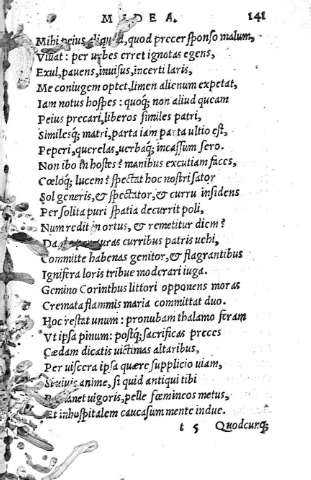 MEDEA. 141
Mihi peius aliquid, quod precer sponso malum,
Viuat: per urbes erret ignotas egens,
Exul, pauens, inuisus, incerti laris,
Me coniugem optet, limen alienum expetat,
Iam notus hospes: quoq; non aliud queam
Peius precari, liberos similes patri,
Similesq; matri, parta iam parta ultio est,
Peperi, querelas, uerbaq; incassum sero.
Non ibo in hostes? manibus excutiam faces,
Cœloq; lucem? spectat hoc nostri sator
Sol generis, & spectator, & curru insidens
Per solita puri spatia decurrit poli,
Num redit in ortus, & remetitur diem?
Da, auras curribus patris uehi,
Committe habenas genitor, & flagrantibus
Ignifera loris tribue moderari iuga.
Gemino Corinthus littori oppquens moras
Cremata flammis maria committat duo.
Hoc restat unum: pronubam thalamo feram
Vt ipsa pinum: postq; sacrificas preces
Cædam dicatis uictimas altaribus,
Per uiscera ipsa quære supplicio uiam,
Si uiuis anime, si quid antiqui tibi
Remanet uigoris, pelle fœmineos metus,
Et inhospitalem caucasum mente indue.
t 5 Quodcunq;